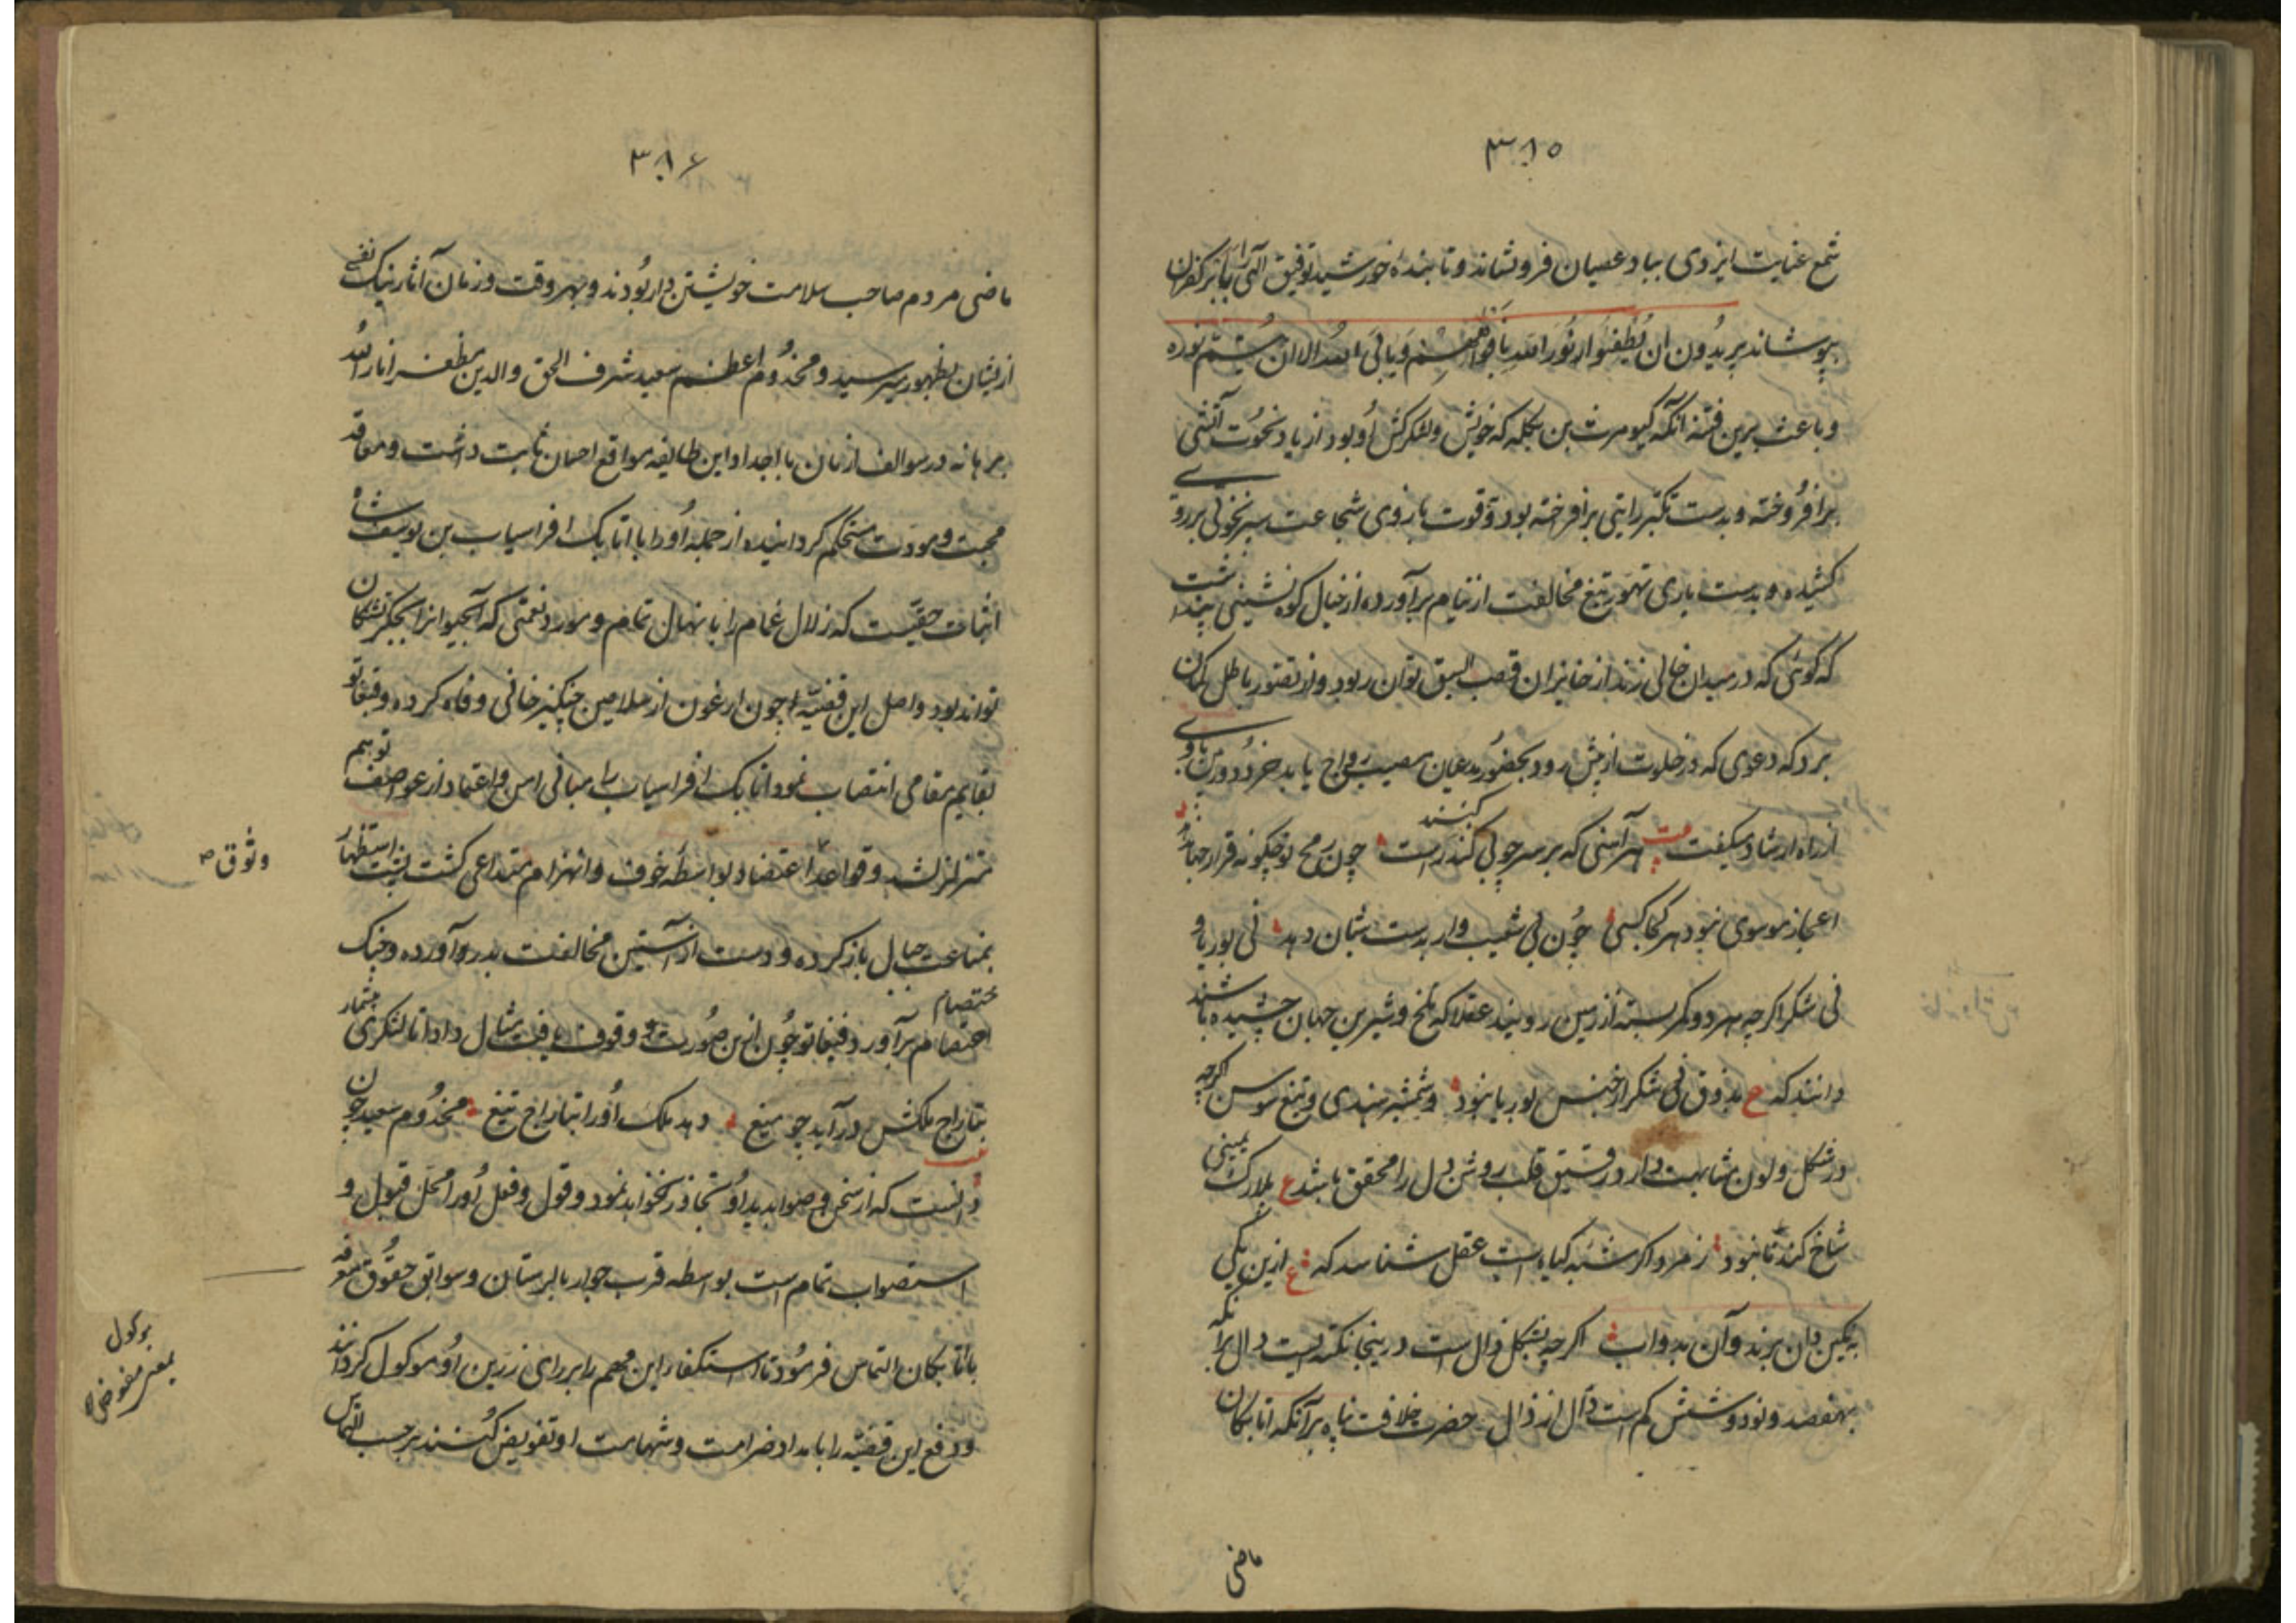 ۳۸۵
شمع عنایت ایزدی بباد عصیان فرو نشاند و تابندهٔ خورشید توفیق الهی را بابر کفران
بپوشاند یریدون ان یطفئوا نور الله بافواههم و یابی الله الا ان یتم نوره
و باعث برین فتنه آنکه کیومرث بن تکله که خویش و لشکرکش او بود از باد نخوت آتشی
برافروخته و بدست تکبر رایتی برافراخته بود و قوت بازوی شجاعت سپر نخوتی بر روی
کشیده و بدست یاری تهور تیغ مخالفت از نیام برآورده از خیال کوه نشینی پنداشت
که کوئی که در میدان خالی زند از خانیران قصب السبق توان ربود و از تصور باطل کمان
برد که دعوی که در خلوت از پیش رود بحضور مدعیان مصیب رواج یابد خرد دوربین باوی
از راه ارشاد میگفت هر آهنی که بر سر چوبی کنند راست چون رمح تو چگونه قرار جهان دهد
اعجاز موسوی نبود هر کجا کسی چون نی شعیب وار بدست شبان دهد نی بوریا و
نی شکر اگرچه هر دو کمر بسته از زمین رویند عقلا که تلخ و شیرین جهان چشیده باشند
دانند که ع بذوق نی شکر از جنس بوریا نبود و شمشیر هندی و تیغ سوسن اگرچه
در شکل و لون مشابهت دارد رقیق قلب روشن دل را محقق باشد ع بلارک یمینی
شاخ کندنا نبود زمرد اگر شبه کیاه است عقل شناسد که ع ازین یکی
به نکین دان برند و آن بدواب اگرچه بشکل ذال است در ینجا نکته ایست دال برآنکه
بهفصد و نود و شش کم است دال از ذال حضرت خلافت پناه برآنکه اتابکان
ماضی
۳۸۶
ماضی مردم صاحب سلامت خویشتن دار بودند و بهر وقت و زمان آثار نیک نفسی
ازیشان بظهور میرسید و مخدوم اعظم سعید شرف الحق والدین مظفر انار الله
برهانه در سوالف ازمان با اجداد این طایفه مواقع احسان ثابت داشت و معاقد
محبت و مودت مستحکم گردانیده از جمله او را با اتابک افراسیاب بن یوسف شاه
اثبات حقیست که زلال غمام را با نهال تمام و مورد نعمتی که آبحیوانرا بجگر تشنکان
تواند بود و اصل این قضیه چون ارغون از ملامین چنگیز خانی وفاه کرده و قیغاتو
بقایم مقامی انتصاب نمود اتابک افراسیاب را مبانی امن و اعتماد از عواصف توهم
متزلزل شد و قواعد اعتضاد بواسطه خوف و انهزام متداعی گشت پشت استظهار
بمناعت جبال باز کرده و دست از آستین مخالفت بدر آورده و چنگ
اعتصام برآورد قیغاتو چون ازین صورت وقوف یافت مثال داد تا لشکری بیشمار
بتاراج ملکش درآید چو میغ دهد ملک او را بتاراج تیغ مخدوم سعید چون
دانست که از سخن و صوابدید او تجاوز نخواهد نمود و قول و فعل او را محل قبول و
استصواب تمام است بواسطه قرب جوار بالرستان و سوابق حقوق متعرفه
باتابکان التماس فرمود تا استکفاء این مهم را بر رای زرین او موکول گردانند
و دفع این قضیه را بامداد ضرامت و شهامت او تفویض کنند بر حسب التماس
وثوق
موکول
بمعنی مفوض